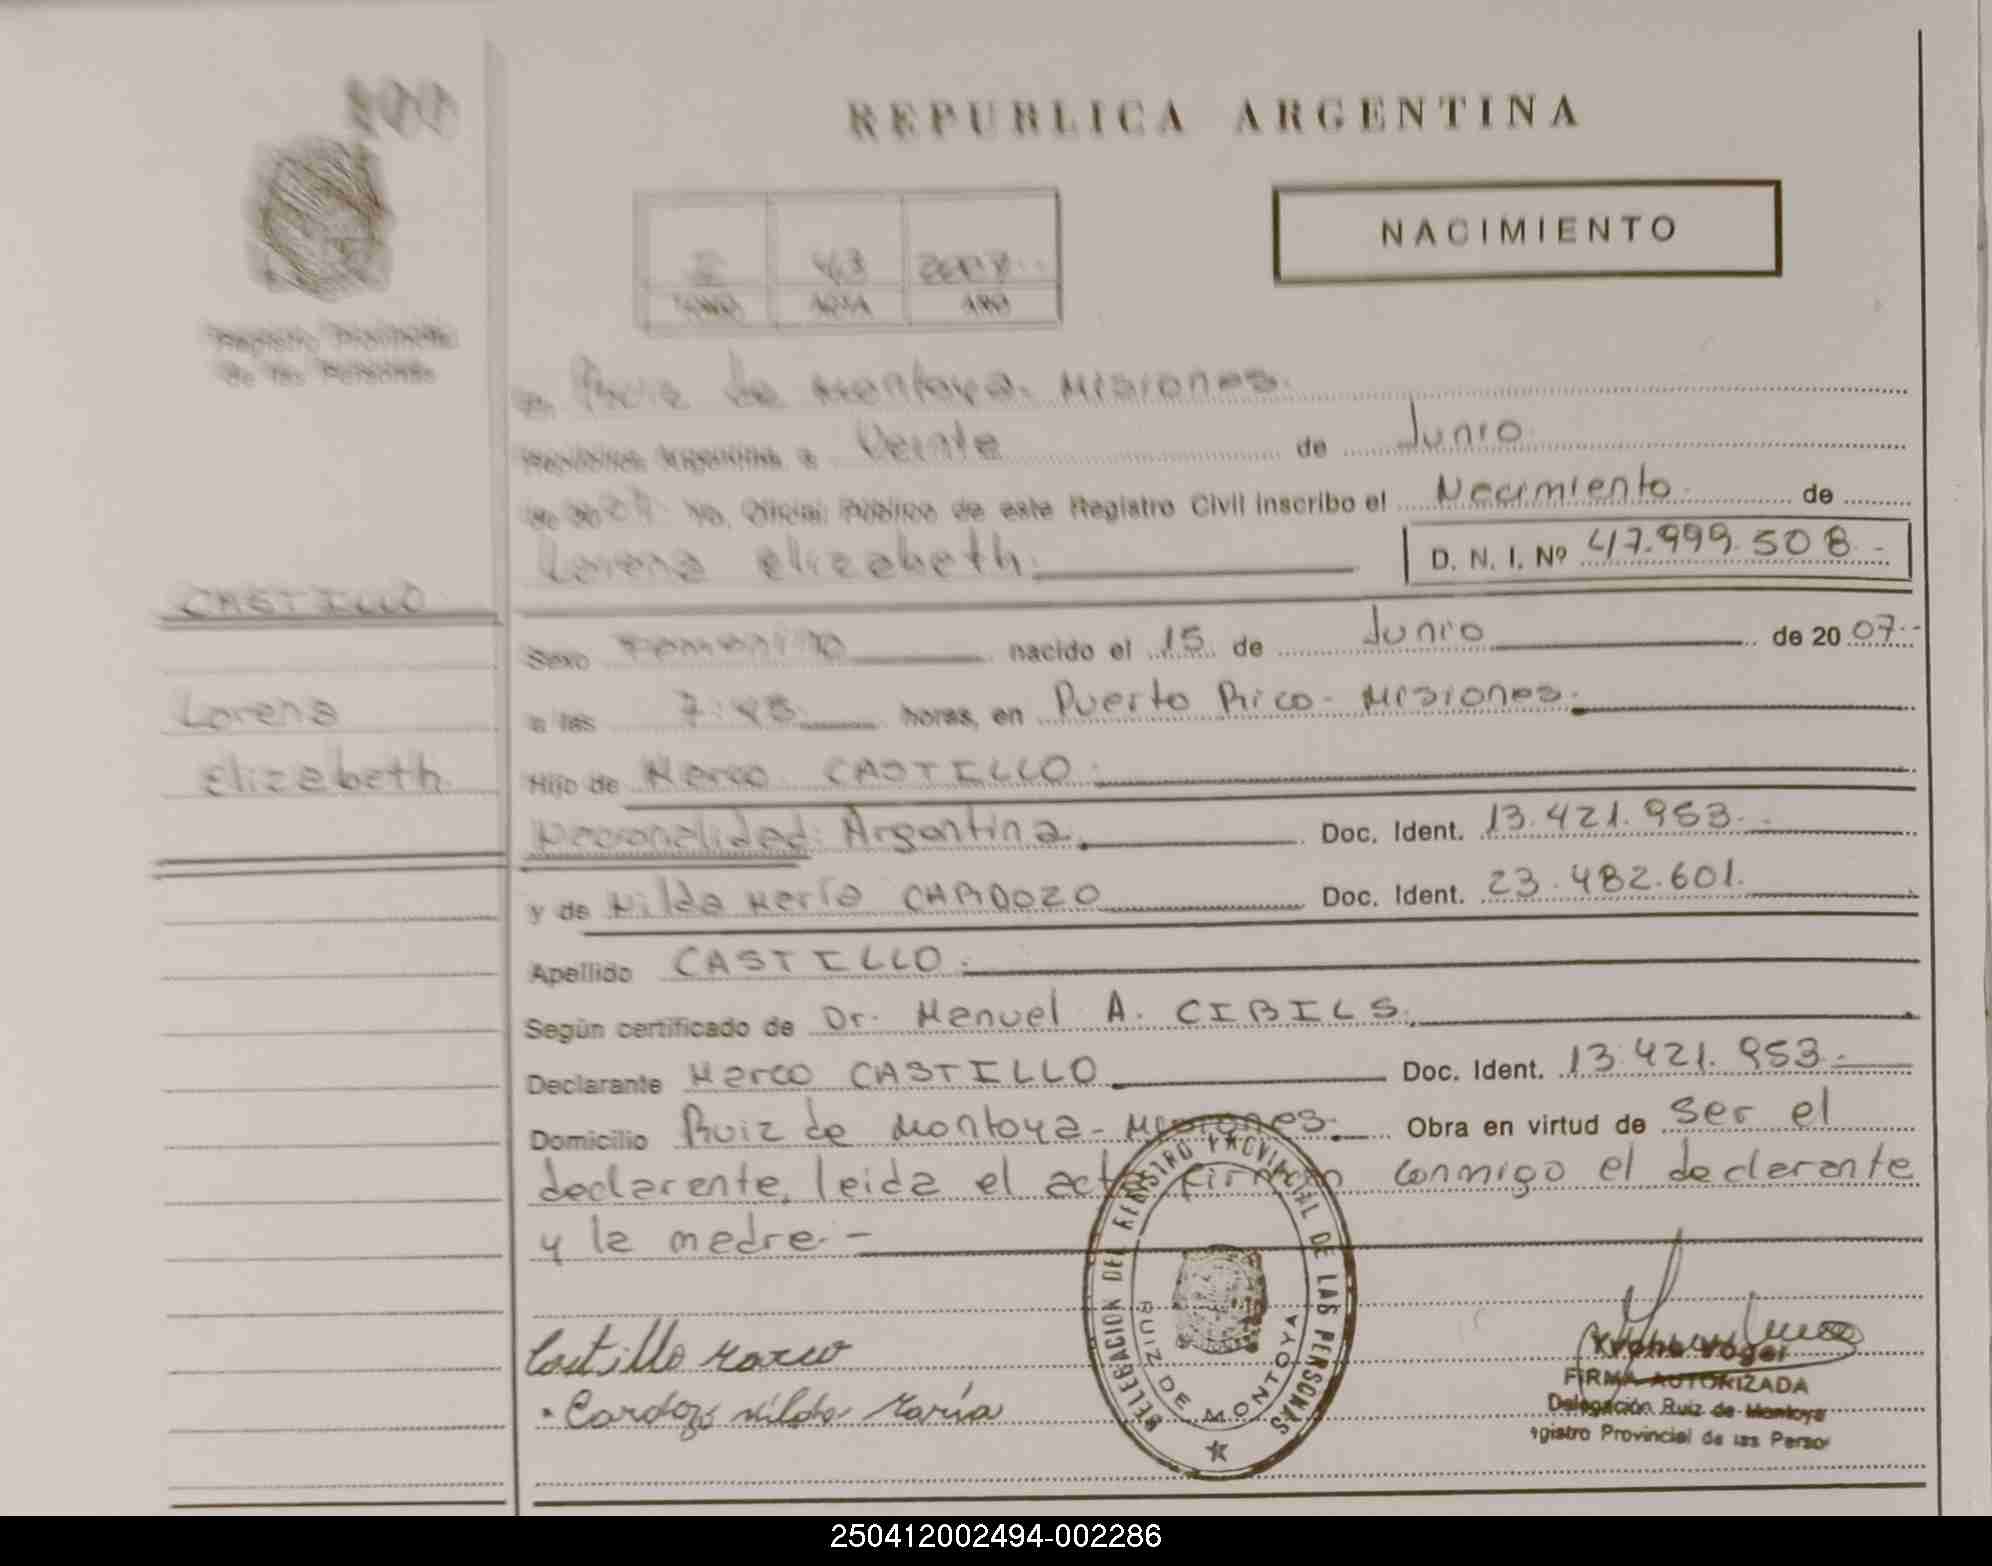 REPUBLICA ARGENTINA
NACIMIENTO
Registro Provincial
de las Personas
43
TOMO ACTA AÑO
en Ruiz de Montoya. Misiones.
República Argentina a Veinte de Junio
de 2007 Yo, Oficial Público de este Registro Civil inscribo el Nacimiento de
Lorena Elizabeth.
D. N. I. Nº 47.999.508.-
CASTILLO
Lorena
Elizabeth.
Sexo Femenino nacido el 15 de Junio de 20 07.-
a las 7:45 horas, en Puerto Rico - Misiones.
Hijo de Marco CASTILLO.
Nacionalidad: Argentina. Doc. Ident. 13.421.953.-
y de Nilda María CARDOZO Doc. Ident. 23.482.601.
Apellido CASTILLO.
Según certificado de Dr. Manuel A. CIBILS.
Declarante Marco CASTILLO Doc. Ident. 13.421.953.-
Domicilio Ruiz de Montoya - Misiones. Obra en virtud de ser el
declarante, leida el acta firman conmigo el declarante
y la madre.-
DELEGACION DEL REGISTRO PROVINCIAL DE LAS PERSONAS
RUIZ DE MONTOYA
Castillo Marco
Cardozo Nilda María
FIRMA AUTORIZADA
Delegación Ruiz de Montoya
gistro Provincial de las Perso
250412002494-002286